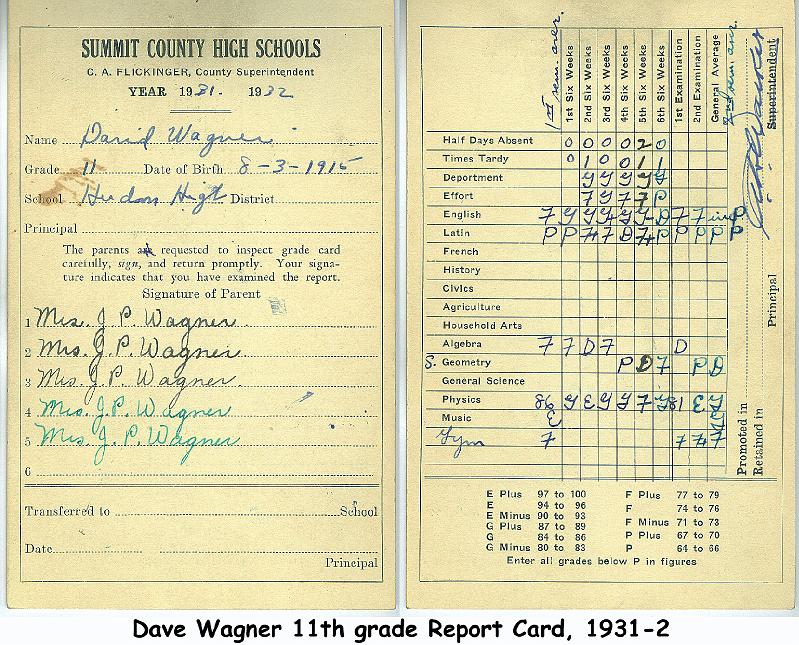 SUMMIT COUNTY HIGH SCHOOLS
C. A. FLICKINGER, County Superintendent
YEAR 1931. 1932
Name David Wagner
Grade 11 Date of Birth 8-3-1915
School Hudson High District
Principal
The parents are requested to inspect grade card
carefully, sign, and return promptly. Your signa-
ture indicates that you have examined the report.
Signature of Parent
1 Mrs. J. P. Wagner
2 Mrs. J. P. Wagner
3 Mrs. J. P. Wagner
4 Mrs. J. P. Wagner
5 Mrs. J. P. Wagner
6
Transferred to School
Date
Principal
1st sem. aver.
1st Six Weeks
2nd Six Weeks
3rd Six Weeks
4th Six Weeks
5th Six Weeks
6th Six Weeks
1st Examination
2nd Examination
General Average
2nd sem. aver.
Half Days Absent 0 0 0 0 2 0
Times Tardy 0 1 0 0 1 1
Department
Effort
English
Latin
French
History
Civics
Agriculture
Household Arts
Algebra F F D F D
S. Geometry P D F P D
General Science
Physics 86 G E G G F G 81 E G
Music E
Gym F
Superintendent
Principal
Promoted in
Retained in
E Plus 97 to 100 F Plus 77 to 79
E 94 to 96 F 74 to 76
E Minus 90 to 93 F Minus 71 to 73
G Plus 87 to 89 P Plus 67 to 70
G 84 to 86 P 64 to 66
G Minus 80 to 83
Enter all grades below P in figures
Dave Wagner 11th grade Report Card, 1931-2